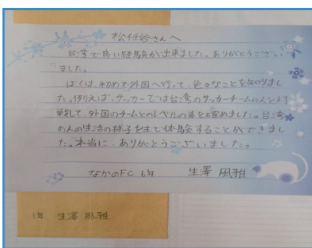 松任鈴さんへ
台湾で良い経験が出来ました。ありがとうござい
ました。
ぼくは、初めて外国へ行って、色々なことを知りまし
た。例えば、サッカーでは台湾のサッカーチームの人と
戦って、外国のチームとのレベルの差を知れました。台湾
の人の生活の様子をまで体験することができまし
た。本当に、ありがとうございました。
なかのFC 6年 生澤 風雅
生澤 風雅